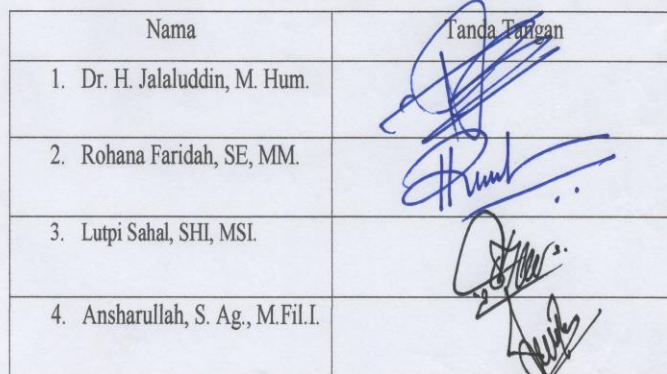 Nama Tanda Tangan
1. Dr. H. Jalaluddin, M. Hum.
2. Rohana Faridah, SE, MM.
3. Lutpi Sahal, SHI, MSI.
4. Ansharullah, S. Ag., M.Fil.I.